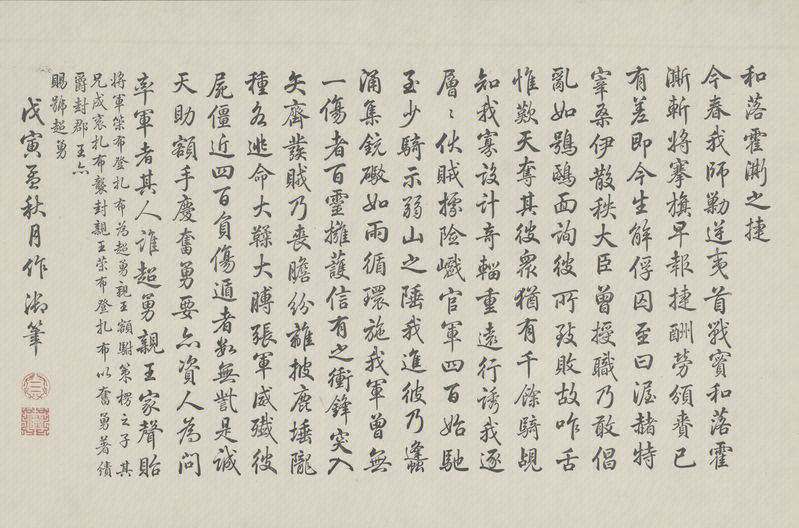 和落霍澌之捷
今春我師勦逆夷首戰賓和落霍
澌斬將搴旗早報捷酬勞頒賚已
有差即今生解俘囚至曰渥赭特
宰桑伊散秩大臣曾授職乃敢倡
亂如鴞鴟面詢彼所致敗故咋舌
惟歎天奪其彼衆猶有千餘騎覘
知我寡設計奇輜重遠行誘我逐
層〻伏賊據險巇官軍四百始馳
至少騎示弱山之陲我進彼乃蠭
涌集銃礮如雨循環施我軍曾無
一傷者百靈擁護信有之衝鋒突入
矢齊發賊乃喪膽紛離披鹿埵隴
種各逃命大鞣大膊張軍威殲彼
屍僵近四百負傷遁者數無訾是誠
天助額手慶奮勇要亦資人為問
率軍者其人誰超勇親王家聲貽
將軍策布登扎布為超勇親王額駙策楞之子其
兄成衮扎布襲封親王策布登扎布以奮勇著績
爵封郡王亦
賜號超勇
戊寅孟秋月作御筆